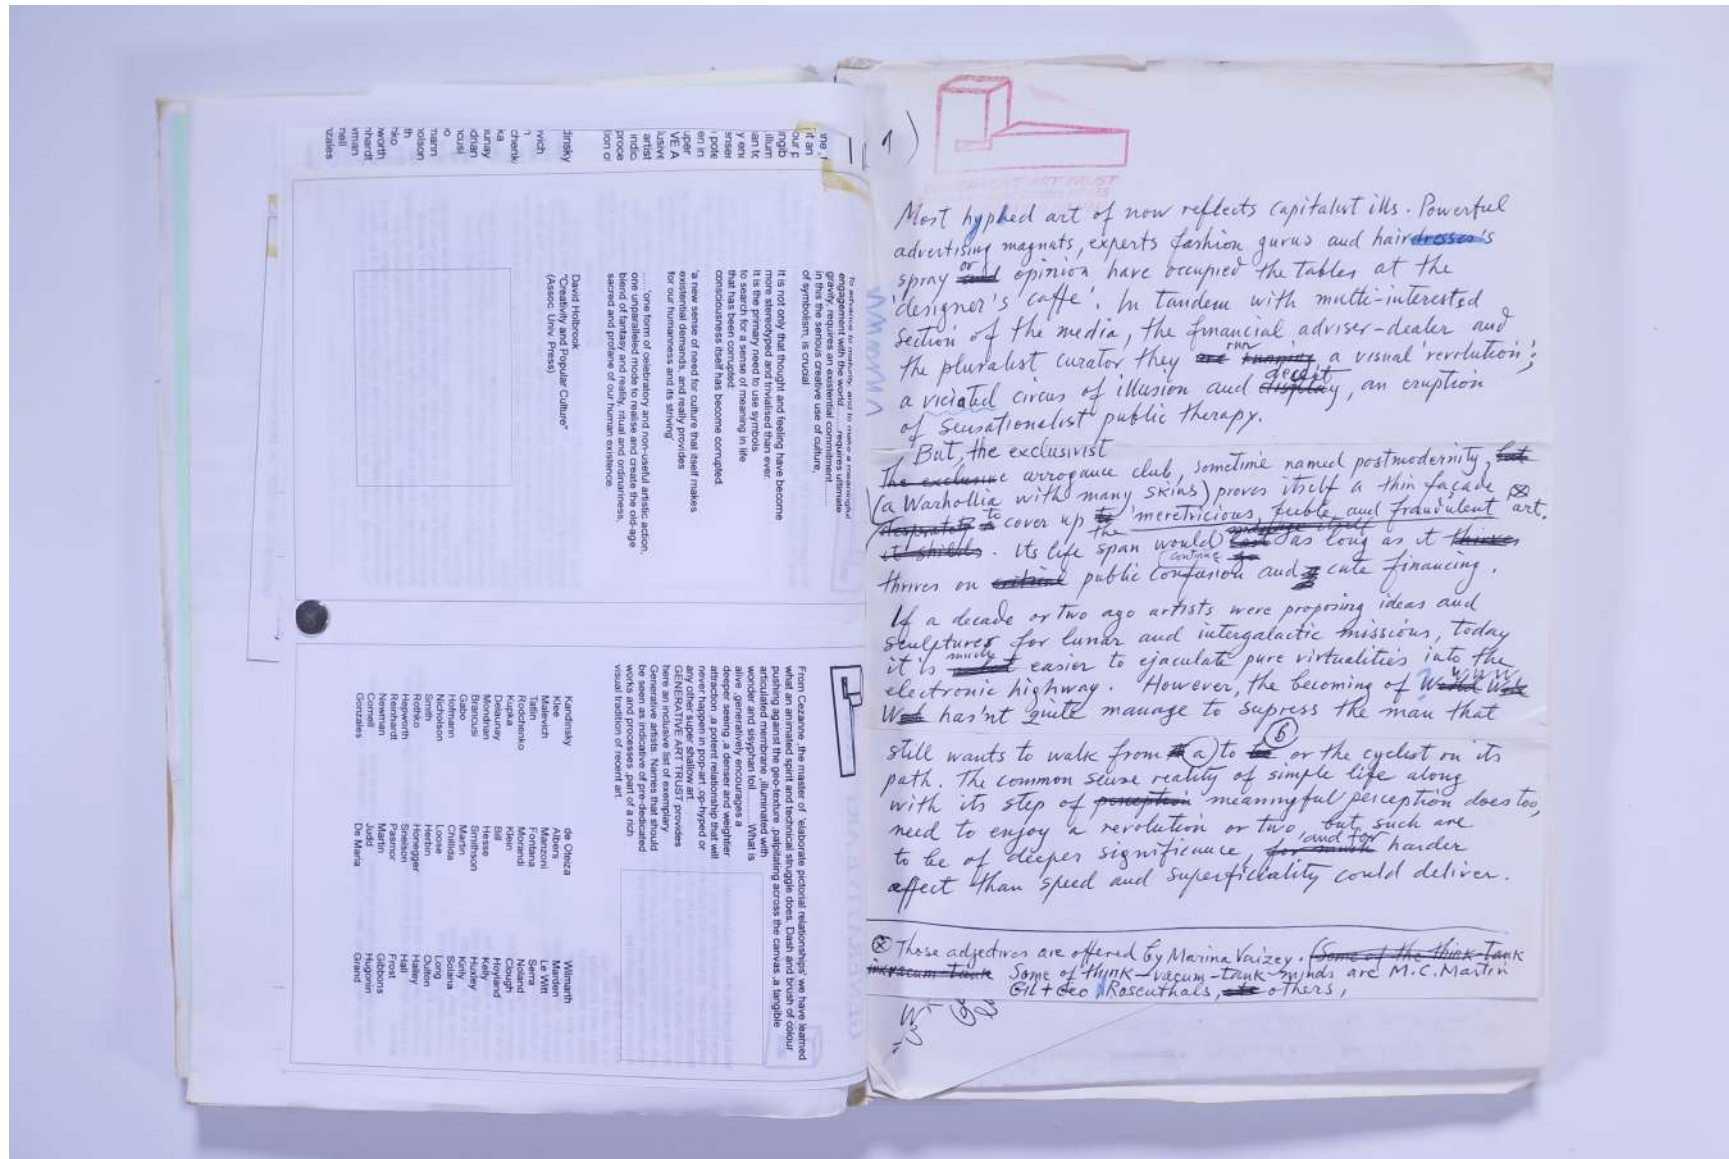 To advance to maturity, and to make a meaningful
engagement with the world ......requires ultimate
gravity, requires an existential commitment..........
in this the serious creative use of culture,
of symbolism, is crucial
It is not only that thought and feeling have become
more stereotyped and trivialised than ever:
it is the primary need to use symbols
to search for a sense of meaning in life
that has been corrupted:
consciousness itself has become corrupted.
'a new sense of need for culture that itself makes
existential demands, and really provides
for our humanness and its striving'
......'one form of celebratory and non-useful artistic action,
one unparalleled mode to realise and create the old-age
blend of fantasy and reality, ritual and ordinariness,
sacred and profane of our human existence.
David Holbrook
"Creativity and Popular Culture"
(Assoc. Univ. Press)
From Cezanne ,the master of 'elaborate pictorial relationships' we have learned
what an animated spirit and technical struggle does. Dash and brush of colour
pushing against the geo-texture ,palpitating across the canvas ,a tangible
articulated membrane ,illuminated with
wonder and sisyphan toil ..........What is
alive ,generatively encourages a
deeper seeing ,a denser and weightier
attraction ,a potent relationship that will
never happen in pop-art ,op-hyped or
any other super shallow art.
GENERATIVE ART TRUST provides
here an inclusive list of exemplary
Generative artists. Names that should
be seen as indicative of pre-dedicated
works and processes ,part of a rich
visual tradition of recent art.
Kandinsky
Klee
Malevich
Tatlin
Rodchenko
Kupka
Delaunay
Mondrian
Brancusi
Gabo
Hofmann
Nicholson
Smith
Rothko
Hepworth
Reinhardt
Newman
Cornell
Gonzales
de Oteiza
Albers
Manzoni
Fontana
Morandi
Klein
Bill
Hesse
Smithson
Martin
Chillida
Loose
Herbin
Honegger
Snelson
Pasmor
Martin
Judd
De Maria
Wilmarth
Marden
Le Witt
Serra
Noland
Clough
Hoyland
Kelly
Huxley
Kinly
Solana
Long
Oulton
Hailey
Hall
Frost
Gibbons
Hugonin
Grand
1)
GENERATIVE ART TRUST
Most hyphed art of now reflects capitalist ills. Powerful
advertising magnats, experts fashion gurus and hairdresser's
spray and or opinion have occupied the tables at the
'designer's caffe'. In tandem with multi-interested
section of the media, the financial adviser-dealer and
the pluralist curator they are running run a visual 'revolution';
a viciated circus of illusion and display deceit, an eruption
of sensationalist public therapy.
But, the exclusivist
The exclusive arrogance club, sometime named postmodernity, but
(a Warhollia with many skins) proves itself a thin façade ⊗
desperate to cover up the 'meretricious, feeble, and fraudulent' art.
it shields. Its life span would last manage itself as long as it thrives
continue
thrives on critical public confusion and cute financing.
If a decade or two ago artists were proposing ideas and
sculptures for lunar and intergalactic missions, today
it is much easier to ejaculate pure virtualities into the
electronic highway. However, the becoming of World Wide WWW
Web hasn't quite manage to supress the man that
still wants to walk from a to b or the cyclist on its
path. The common sense reality of simple life along
with its step of perception meaningful perception does too,
need to enjoy a revolution or two, but such are
to be of deeper significance, for much and for harder
affect than speed and superficiality could deliver.
⊗ Those adjectives are offered by Marina Vaizey. (Some of the think-tank
in vacum tank Some of think-vacum-tank-minds are M.C. Martin
Gil + Geo, Rosenthals, others,